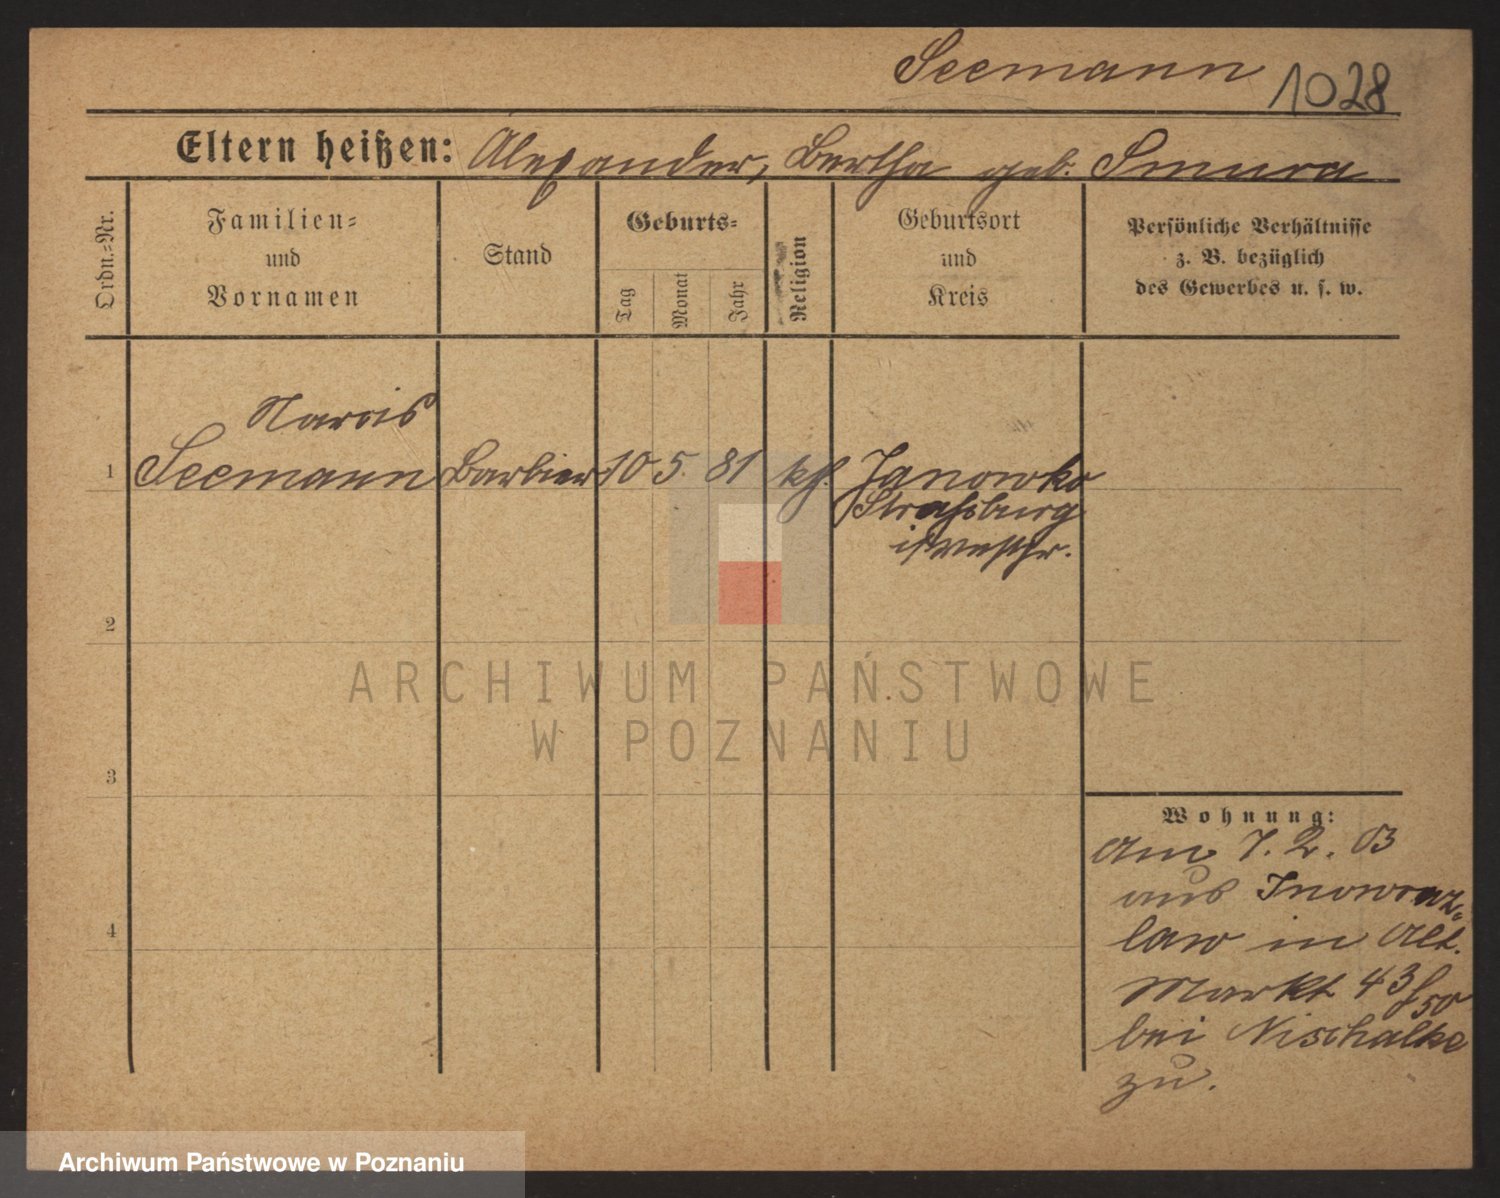 Seemann 1028
Eltern heißen: Alexander, Bertha geb. Smura
Ordn.=Nr.
Familien=
und
Vornamen
Stand
Geburts=
Tag
Monat
Jahr
Religion
Geburtsort
und
Kreis
Persönliche Verhältnisse
z. B. bezüglich
des Gewerbes u. s. w.
Narcis
1 Seemann Barbier 10 5. 81 kth. Janowko
Straßburg
i/Westpr.
2
3
4
Wohnung:
Am 7. 2. 03
aus Inowraz=
law in Alt.
Markt 43/50
bei Nischalke
zu.
ARCHIWUM PAŃSTWOWE
W POZNANIU
Archiwum Państwowe w Poznaniu